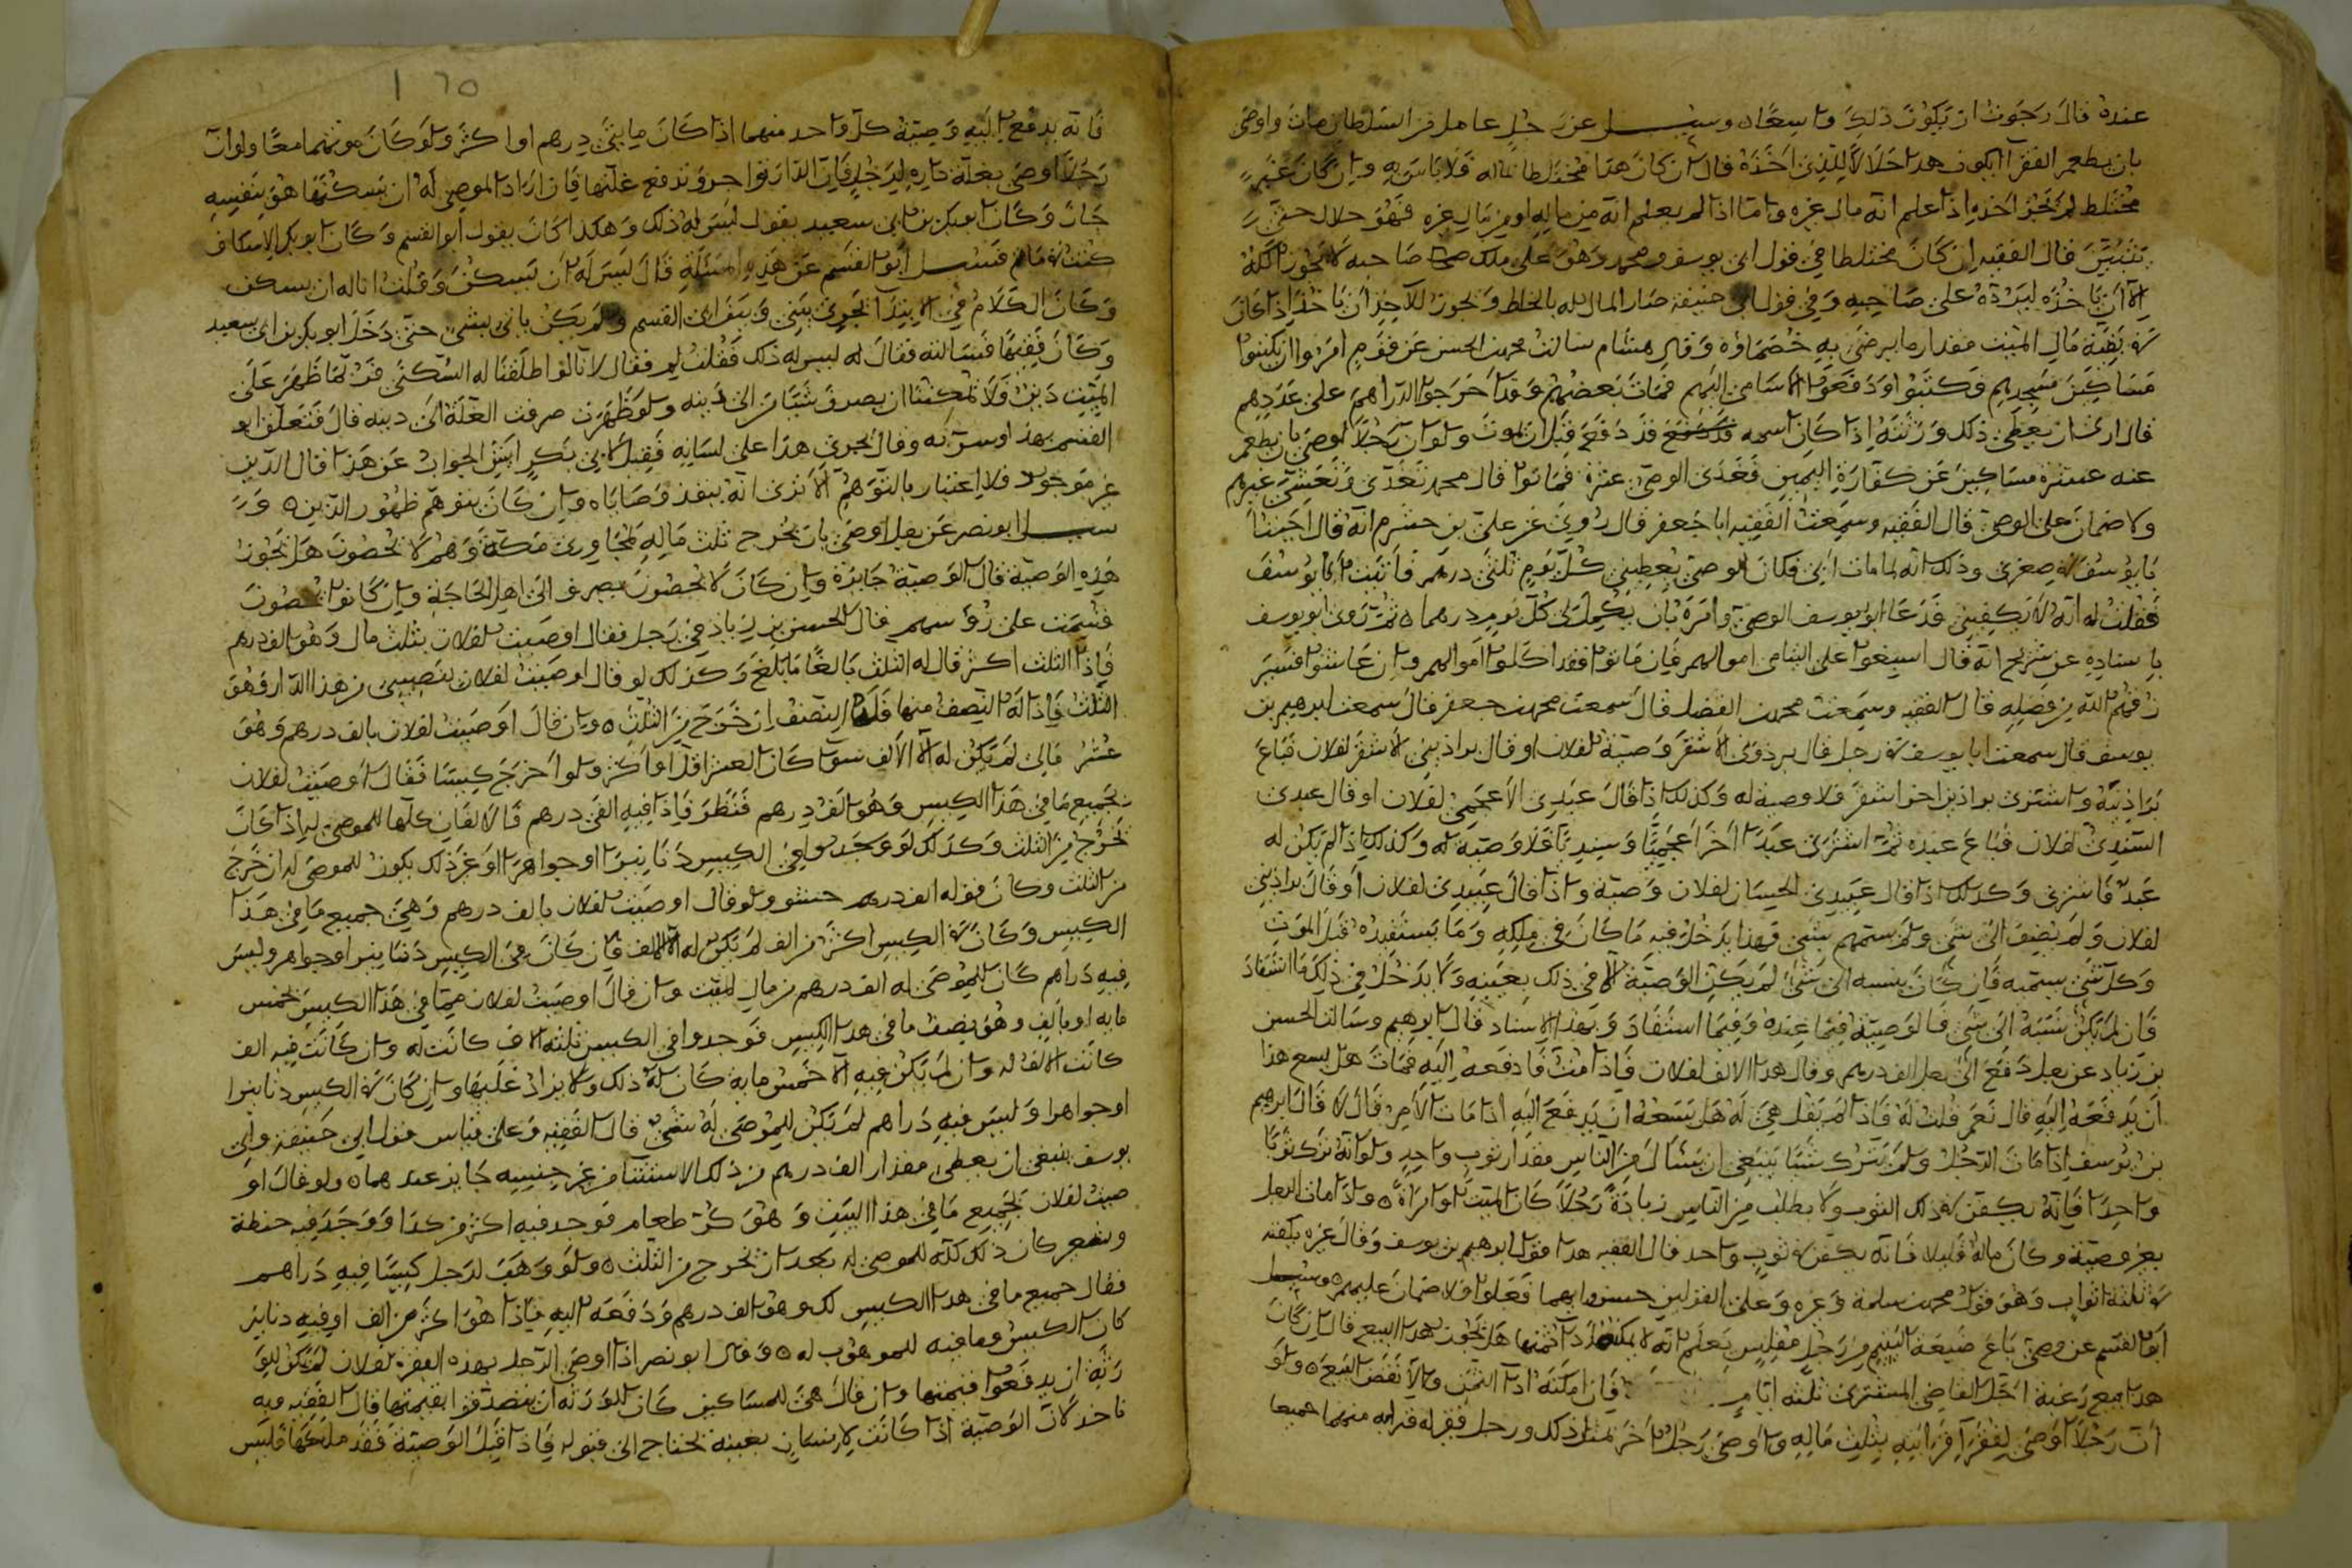 عنده قال رجوت ان يكون ذلك واسعا ه وسئل عن رجل عامل من السلطان مات واوصى
بان يطعم الفقرا ايكون هذا حلالا للذي اخذه قال ان كان هذا مختلطا بماله فلا باس به وان كان غير
مختلط لم يجز اخذه اذا علم انه مال غيره واما اذا لم يعلم انه من ماله او من مال غيره فهو حلال حتى
يتبين قال الفقيه ان كان مختلطا في قول ابي يوسف ومحمد وهو على ملك صاحبه لا يجوز اكله
الا ان ياخذه ليرده على صاحبه وفي قول ابي حنيفة صار المال له بالخلط ويجوز للاخذ ان ياخذ اذا كان
في بقية مال الميت مقدار ما يرضى به خصماؤه وقال هشام سالت محمد بن الحسن عن قوم امروا ان يكتبوا
مساكين مسجدهم فكتبوا ودفعوا الاسامي اليهم فمات بعضهم وقد اخرجوا الدراهم على عددهم
قال ارى ان يعطى ذلك ورثته اذا كان اسمه قد دفع قبل ان يموت ولو ان رجلا اوصى بان يطعم
عنه عشرة مساكين عن كفارة اليمين فغدى الوصي عشرة فماتوا قال محمد تغدى وتعشى غيرهم
ولا ضمان على الوصي قال الفقيه وسمعت الفقيه ابا جعفر قال روي عن علي بن خشرم انه قال اتينا
بابو يوسف في صغري وذلك انه لما مات ابي فكان الوصي يعطيني كل يوم ثلثي درهم فاتيت ابا يوسف
فقلت له انه لا يكفيني فدعا ابو يوسف الوصي وامره بان يكمل لي كل يوم درهما ه ثم روى ابو يوسف
باسناده عن شريح انه قال اسبغوا على اليتامى اموالهم فان ماتوا فقد اكلوا اموالهم وان عاشوا فسير
زقهم الله من فضله قال الفقيه وسمعت محمد بن الفضل قال سمعت محمد بن جعفر قال سمعت ابرهيم بن
يوسف قال سمعت ابا يوسف في رجل قال برذوني الاشقر وصية لفلان او قال براذيني الاشقر لفلان فباع
براذينه واشترى براذين اخر اشقر فلا وصية له وكذلك اذا قال عبدي الاعجمي لفلان او قال عبدي
السندي لفلان فباع عبده ثم اشترى عبدا اخر اعجميا وسنديا فلا وصية له وكذلك اذا لم يكن له
عبد فاشترى وكذلك اذا قال عبيدي الحسان لفلان وصية واذا قال عبيدي لفلان او قال براذيني
لفلان ولم يضف الى شي ولم يسمهم بشي فهذا يدخل فيه ما كان في ملكه وما يستفيده قبل الموت
وكل شي يسميه فان كان ينسبه الى شي لم يكن الوصية الا في ذلك بعينه ولا يدخل في ذلك ما استفاد
فان لم يكن نسبه الى شي فالوصية فيما عنده وفيما استفاد وبهذا الاسناد قال ابرهيم وسالت الحسن
بن زياد عن رجل دفع الى رجل الف درهم وقال هذا الالف لفلان فاذا مت فادفعه اليه فمات هل يسع هذا
ان يدفعه اليه قال نعم قلت له فاذا لم يقل هي له هل يسعه ان يدفع اليه اذا مات الامر قال لا قال ابرهيم
بن يوسف اذا مات الرجل ولم يترك شيئا ينبغي ان يسال من الناس مقدار ثوب واحد ولو انه ترك ثوبا
واحدا فانه يكفن في ذلك الثوب ولا يطلب من الناس زيادة رجلا كان الميت او امراة ه واذا مات الرجل
بغير وصية وكان ماله قليلا فانه يكفن في ثوب واحد قال الفقيه هذا قول ابرهيم بن يوسف وقال غيره يكفنه
في ثلثة اثواب وهو قول محمد بن سلمة وغيره وعلى القولين حسن ايهما فعلوا فلا ضمان عليهم ه وسئل
ابو القسم عن وصي باع ضيعة اليتيم من رجل مفلس يعلم انه لا يمكنه ادا ثمنها هل يجوز هذا البيع قال ان كان
هذا بيع رغبة اجل القاضي المشتري ثلثه ايام فان امكنه ادا الثمن والا نقض البيع ه ولو
ان رجلا اوصى لفقرا قرابته بثلث ماله واوصى رجل اخر بمثل ذلك ورجل فقير له قرابه منهما جميعا
١٦٥
فانه يدفع اليه وصية كل واحد منهما اذا كان مايتي درهم او اكثر ولو كان موتهما معا ولو ان
رجلا اوصى بغلة داره لرجل فان الدار تواجر وتدفع غلتها فان اراد الموصى له ان يسكنها هو بنفسه
جاز وكان ابو بكر بن ابي سعيد يقول ليس له ذلك وهكذا كان يقول ابو القسم وكان ابو بكر الاسكاف
فسئل ابو القسم عن هذه المسئلة قال ليس له ان يسكن وقلت انا له ان يسكن
وكان الكلام في الابتدا يجري بيني وبين ابي القسم ولم يكن ياتي بشي حتى دخل ابو بكر بن ابي سعيد
وكان فقيها فسالته فقال له ليس له ذلك فقلت لم فقال لانا لو اطلقنا له السكنى فربما ظهر على
الميت دين فلا يمكننا ان يصرف شيئا من الى دينه ولو ظهرت صرفت الغلة الى دينه قال فتعلق ابو
القسم بهذا وسر به وقال اجرى هذا على لسانه فقيل لابي بكر اين الجواب عن هذا قال الدين
غير موجود فلا اعتبار بالتوهم الا ترى انه ينفذ وصاياه وان كان يتوهم ظهور الدين ه و
سئل ابو نصر عن رجل اوصى بان يخرج ثلث ماله لمجاوري مكة وهم لا يحصون هل يجوز
هذه الوصية قال الوصية جايزة وان كان لا يحصون يصرف الى اهل الحاجة وان كانوا يحصون
قسمت على رؤسهم قال الحسن بن زياد في رجل فقال اوصيت لفلان بثلث مال وهو الف درهم
فاذا الثلث اكثر قال له الثلث بالغا ما بلغ وكذلك لو قال اوصيت لفلان بنصيبي من هذا الدار وهو
الثلث فاذا له النصف منها فله النصف ان خرج من الثلث ه وان قال اوصيت لفلان بالف درهم وهو
عشر مالي لم يكن له الا الالف سوا كان العشر اقل او اكثر ولو اخرج كيسا فقال اوصيت لفلان
بجميع ما في هذا الكيس وهو الف درهم فنظر فاذا فيه الفي درهم فالالفان كلها للموصى له اذا كان
تخرج من الثلث وكذلك لو وجدوا في الكيس دنانيرا او جواهرا او غير ذلك يكون للموصى له ان خرج
من الثلث وكان قوله الف درهم حشو ولو قال اوصيت لفلان بالف درهم وهي جميع ما في هذا
الكيس وكان في الكيس اكثر من الف لم يكن له الا الف فان كان في الكيس دنانير او جواهر وليس
فيه دراهم كان للموصى له الف درهم من مال الميت وان قال اوصيت لفلان مما في هذا الكيس خمس
مايه او بالف وهو نصف ما في هذا الكيس فوجدوا في الكيس ثلثه الاف كانت له وان كانت فيه الف
كانت الالف له وان لم يكن فيه الا خمس مايه كان له ذلك ولا يزاد عليها وان كان في الكيس دنانيرا
او جواهرا وليس فيه دراهم لم يكن للموصى له شي قال الفقيه وعلى قياس قول ابي حنيفة وابي
يوسف ينبغي ان يعطى مقدار الف درهم من ذلك لان الاستثنا من غير جنسه جايز عندهما ه ولو قال او
صيت لفلان بجميع ما في هذا البيت وهو كر طعام فوجد فيه اكثر من كذا ووجد فيه حنطة
وشعير كان ذلك كله للموصى له بعد ان تخرج من الثلث ه ولو وهب لرجل كيسا فيه دراهم
فقال جميع ما في هذا الكيس لك وهو الف درهم ودفعه اليه فاذا هو اكثر من الف او فيه دنانير
كان الكيس وما فيه للموهوب له ه وقال ابو نصر اذا اوصى الرجل بهذه البقرة لفلان لم يكن للو
رثة ان يدفعوا قيمتها وان قال هي للمساكين كان للورثه ان يتصدقوا بقيمتها قال الفقيه وبه
ناخذ لان الوصية اذا كانت لانسان بعينه تحتاج الى قبوله فاذا قبل الوصية فقد ملكها فليس